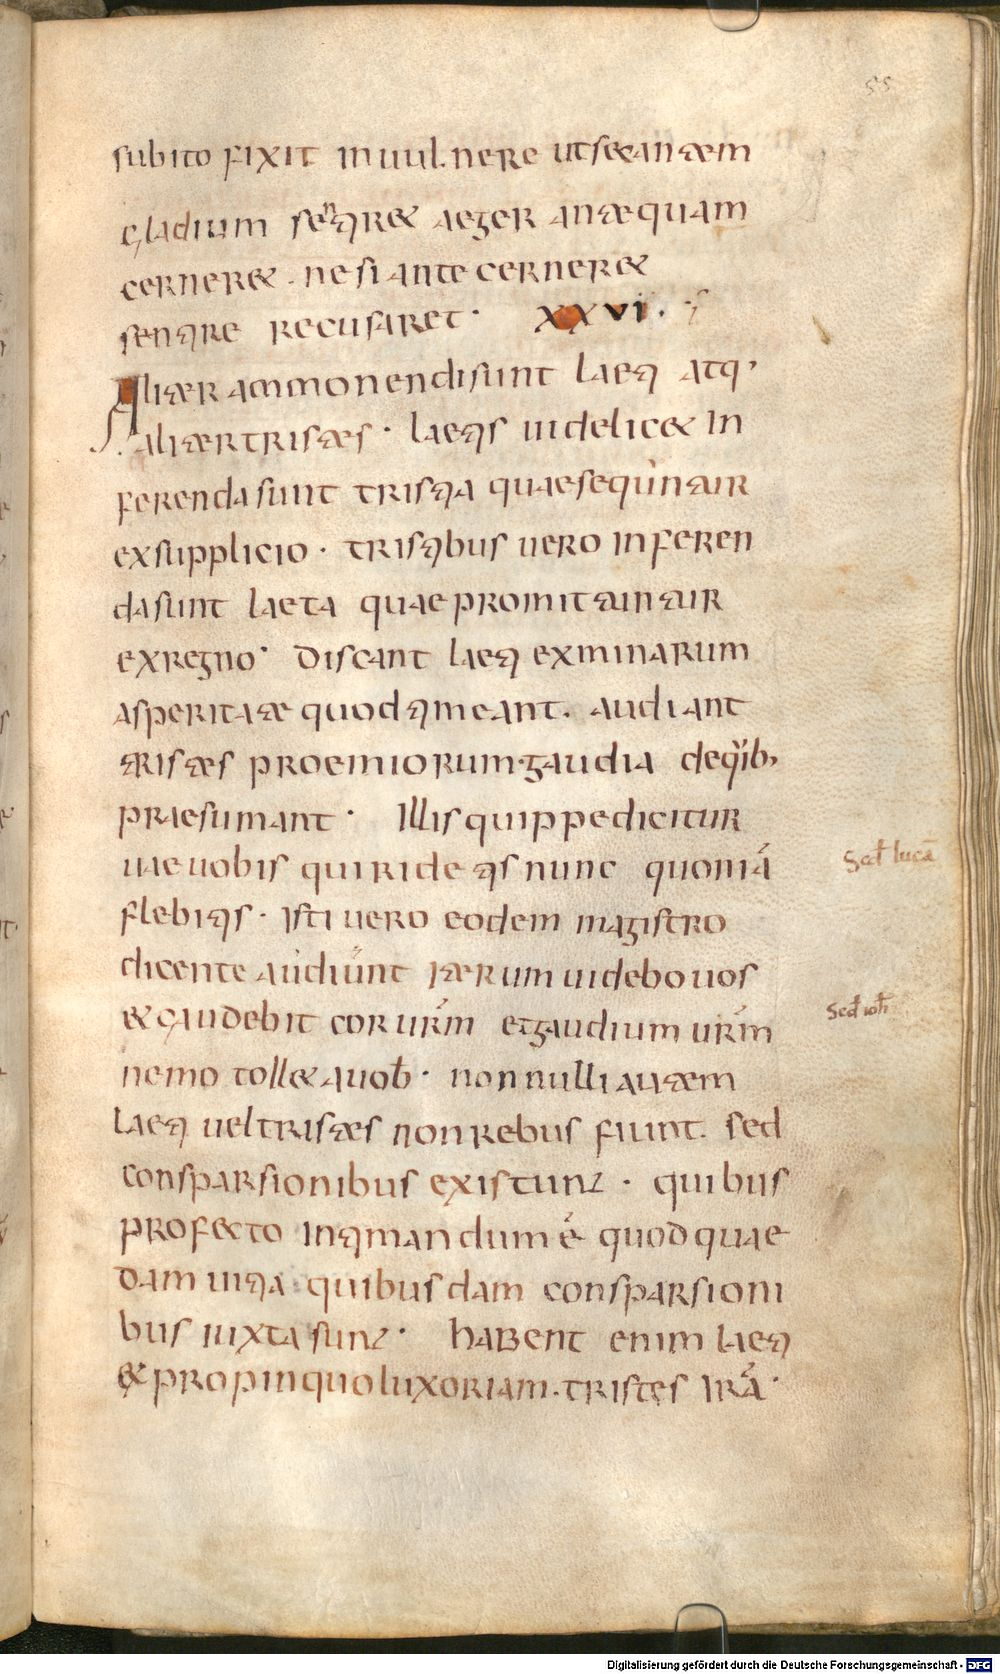 55
subito fixit in uulnere ut secantem
gladium sentiret aeger antequam
cerneret · ne si ante cerneret
sentire recusaret · XXVI.
Aliter ammonendi sunt laeti atq;
aliter tristes · laetis uidelicet in
ferenda sunt tristia quae sequuntur
ex supplicio · tristibus uero inferen
da sunt laeta quae promittuntur
ex regno · Discant laeti ex minarum
asperitate quod timeant. audiant
tristes proemiorum · gaudia de quib;
praesumant · Illis quippe dicitur
uae uobis qui ridetis nunc quoniā
flebitis · isti uero eodem magistro
dicente audiunt iterum uidebo uos
et gaudebit cor urm̄ et gaudium urm̄
nemo tollet a uob̄ · nonnulli autem
laeti uel tristes non rebus fiunt. sed
consparsionibus existunt · quibus
profecto intimandum ē quod quae
dam uitia quibusdam consparsioni
bus iuxta sunt · habent enim laeti
et propinquo luxoriam · tristes irā ·
Secd̄ lucā
Secd̄ ioh̄
Digitalisierung gefördert durch die Deutsche Forschungsgemeinschaft - DFG